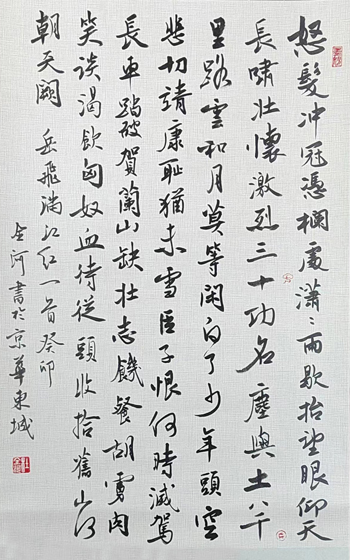 怒髮冲冠憑欄處瀟〻雨歇抬望眼仰天
長嘯壯懷激烈三十功名塵與土八千
里路雲和月莫等閑白了少年頭空
悲切靖康恥猶未雪臣子恨何時滅駕
長車踏破賀蘭山缺壯志饑餐胡虜肉
笑談渴飲匈奴血待從頭收拾舊山河
朝天闕 岳飛滿江紅一首 癸卯
金河書於京華東城